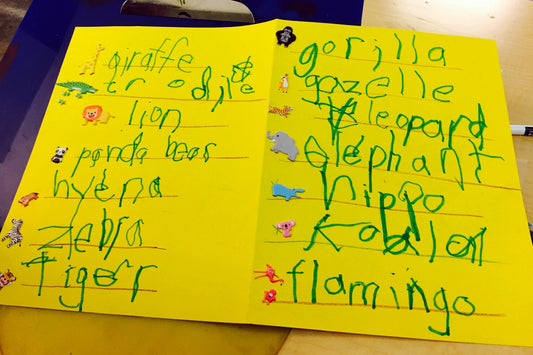 giraffe
crodile
lion
panda bear
hyena
zebra
Tiger
gorilla
gazelle
leopard
elephant
hippo
Koala
flamingo